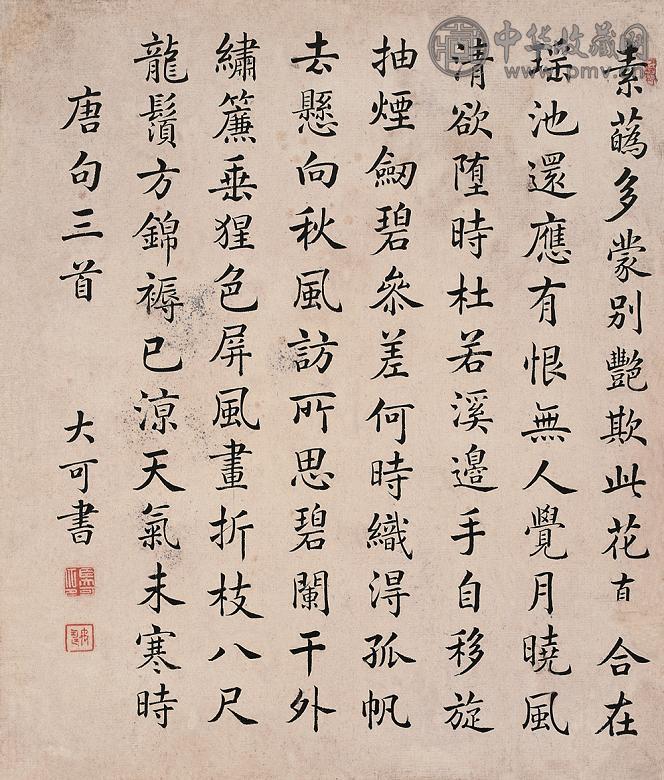 中华收藏网
素蘤多蒙别艷欺此花合在
瑶池還應有恨無人覺月曉風
清欲堕時杜若溪邊手自移旋
抽煙劒碧叅差何時織得孤帆
去懸向秋風訪所思碧闌干外
繡簾垂猩色屏風畫折枝八尺
龍鬚方錦褥已涼天氣未寒時
唐句三首 大可書